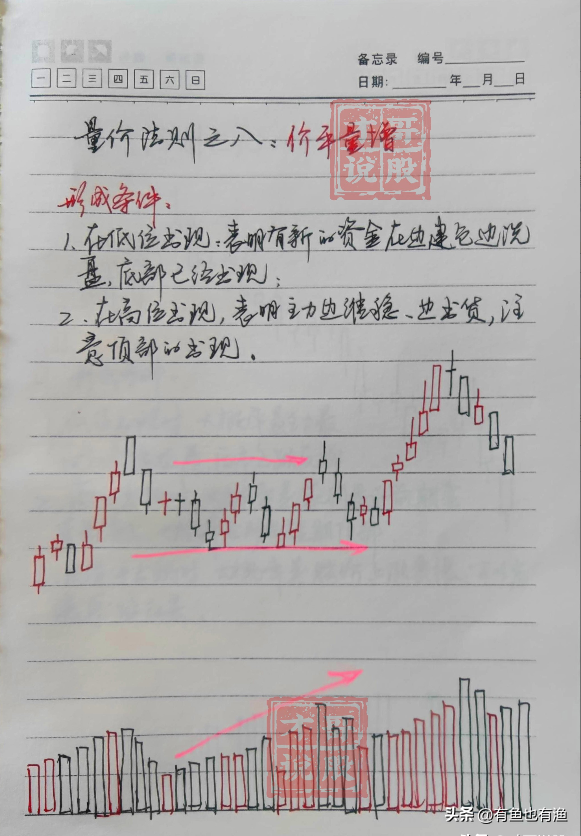 备忘录 编号
一 二 三 四 五 六 日
日期: 年 月 日
量价法则之八:价平量增
形成条件:
1、在低位出现:表明有新的资金在边建仓边洗
盘,底部已经出现;
2、在高位出现,表明主力边维稳、边出货,注
意顶部的出现。
哥
说股
说股
头条 @有鱼也有渔